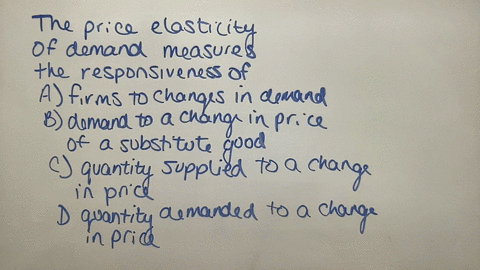 The price elasticity
of demand measures
the responsiveness of
A) firms to changes in demand
B) demand to a change in price
of a substitute good
C) quantity supplied to a change
in price
D quantity demanded to a change
in price